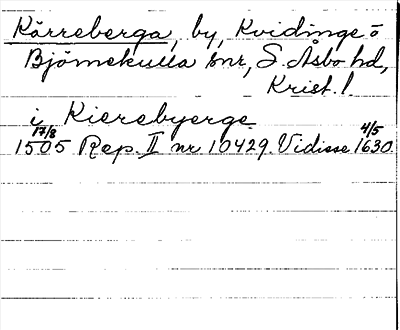 Kärreberga, by, Kvidinge ö
Björnekulla snr, S. Åsbo hd,
Krist. l.
i Kierebyerge
17/8 4/5
1505 Rep. II nr 10429. Vidisse 1630